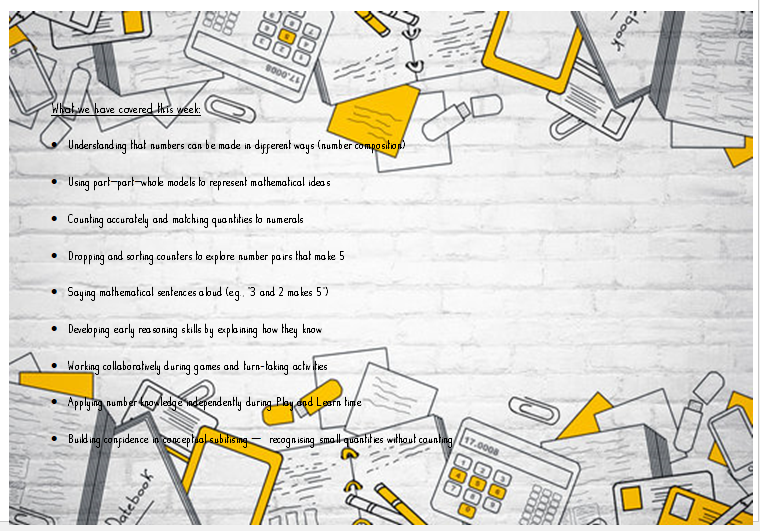 17.0008
ebook
What we have covered this week:
• Understanding that numbers can be made in different ways (number composition)
• Using part–part–whole models to represent mathematical ideas
• Counting accurately and matching quantities to numerals
• Dropping and sorting counters to explore number pairs that make 5
• Saying mathematical sentences aloud (e.g., "3 and 2 makes 5")
• Developing early reasoning skills by explaining how they know
• Working collaboratively during games and turn-taking activities
• Applying number knowledge independently during Play and Learn time
• Building confidence in conceptual subitising — recognising small quantities without counting
17.0008
1 2 3
4 5 6
7 8 9
0
Notebook